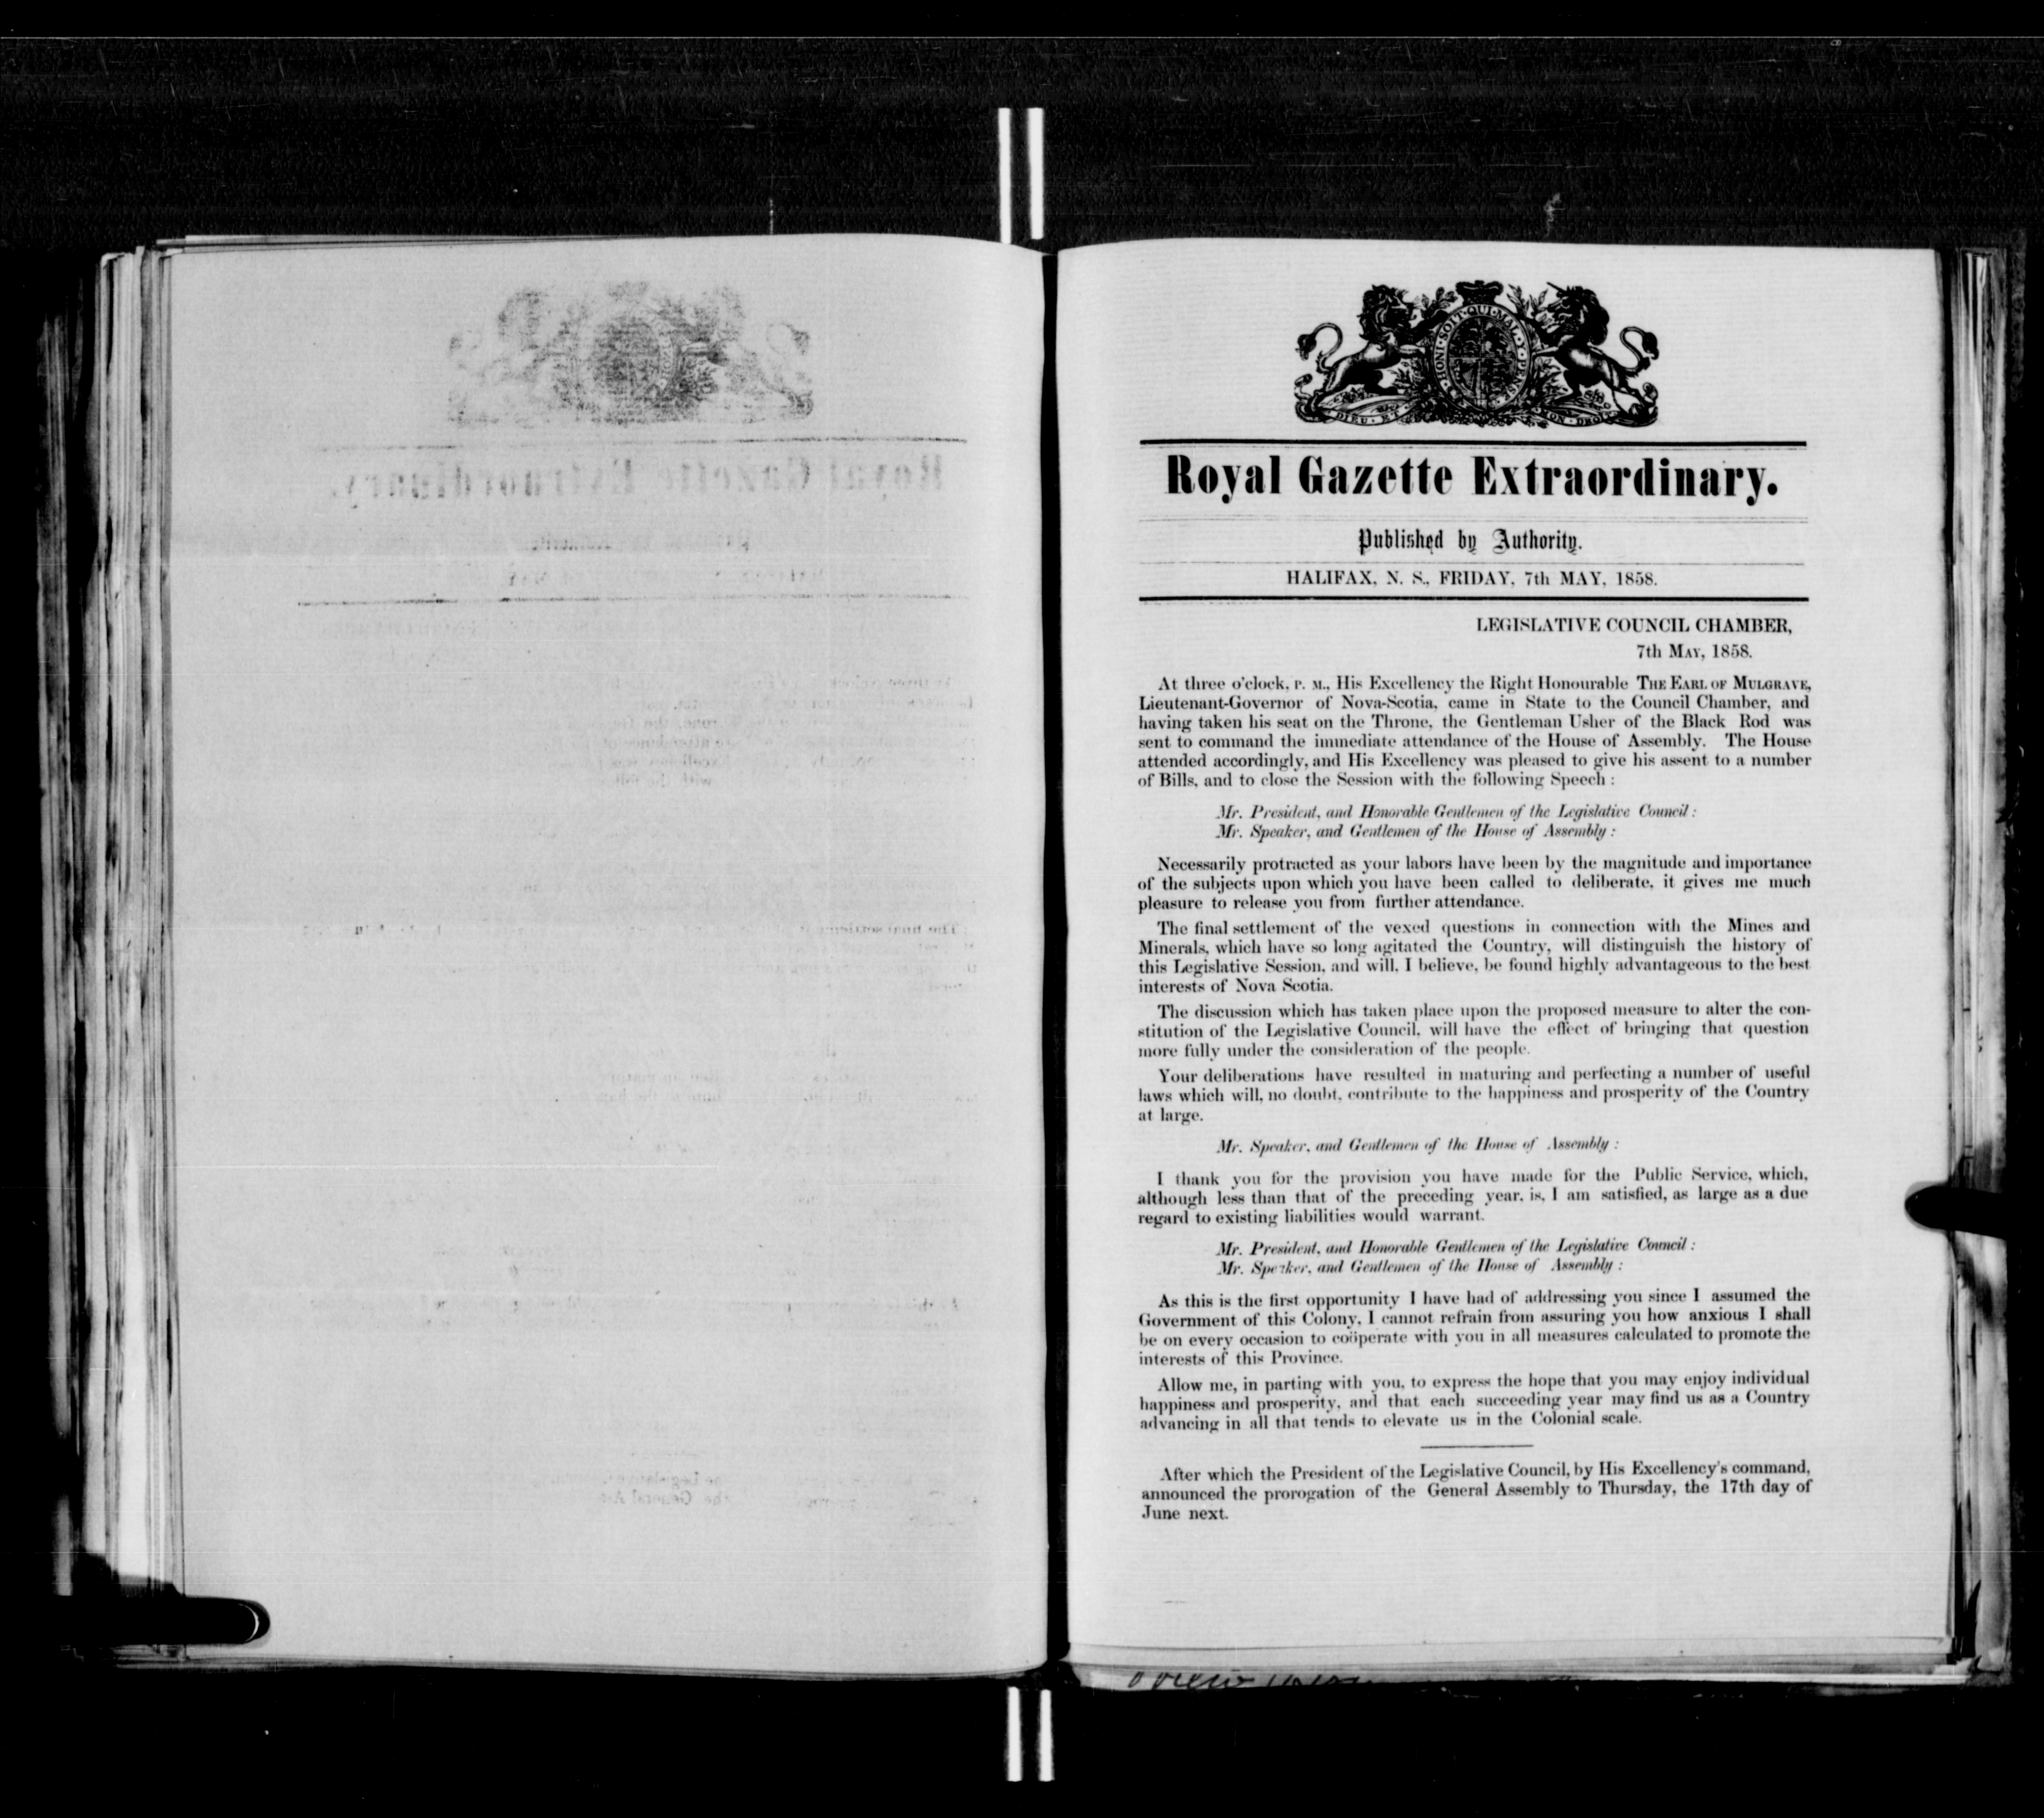 HONI·SOIT·QUI·MAL·Y·PENSE
DIEU·ET MON·DROIT
Royal Gazette Extraordinary.
Published by Authority.
HALIFAX, N. S., FRIDAY, 7th MAY, 1858.
LEGISLATIVE COUNCIL CHAMBER,
7th MAY, 1858.
At three o'clock, P. M., His Excellency the Right Honourable THE EARL OF MULGRAVE,
Lieutenant-Governor of Nova-Scotia, came in State to the Council Chamber, and
having taken his seat on the Throne, the Gentleman Usher of the Black Rod was
sent to command the immediate attendance of the House of Assembly. The House
attended accordingly, and His Excellency was pleased to give his assent to a number
of Bills, and to close the Session with the following Speech :
Mr. President, and Honorable Gentlemen of the Legislative Council :
Mr. Speaker, and Gentlemen of the House of Assembly :
Necessarily protracted as your labors have been by the magnitude and importance
of the subjects upon which you have been called to deliberate, it gives me much
pleasure to release you from further attendance.
The final settlement of the vexed questions in connection with the Mines and
Minerals, which have so long agitated the Country, will distinguish the history of
this Legislative Session, and will, I believe, be found highly advantageous to the best
interests of Nova Scotia.
The discussion which has taken place upon the proposed measure to alter the con-
stitution of the Legislative Council, will have the effect of bringing that question
more fully under the consideration of the people.
Your deliberations have resulted in maturing and perfecting a number of useful
laws which will, no doubt, contribute to the happiness and prosperity of the Country
at large.
Mr. Speaker, and Gentlemen of the House of Assembly :
I thank you for the provision you have made for the Public Service, which,
although less than that of the preceding year, is, I am satisfied, as large as a due
regard to existing liabilities would warrant.
Mr. President, and Honorable Gentlemen of the Legislative Council :
Mr. Speaker, and Gentlemen of the House of Assembly :
As this is the first opportunity I have had of addressing you since I assumed the
Government of this Colony, I cannot refrain from assuring you how anxious I shall
be on every occasion to coöperate with you in all measures calculated to promote the
interests of this Province.
Allow me, in parting with you, to express the hope that you may enjoy individual
happiness and prosperity, and that each succeeding year may find us as a Country
advancing in all that tends to elevate us in the Colonial scale.
After which the President of the Legislative Council, by His Excellency's command,
announced the prorogation of the General Assembly to Thursday, the 17th day of
June next.